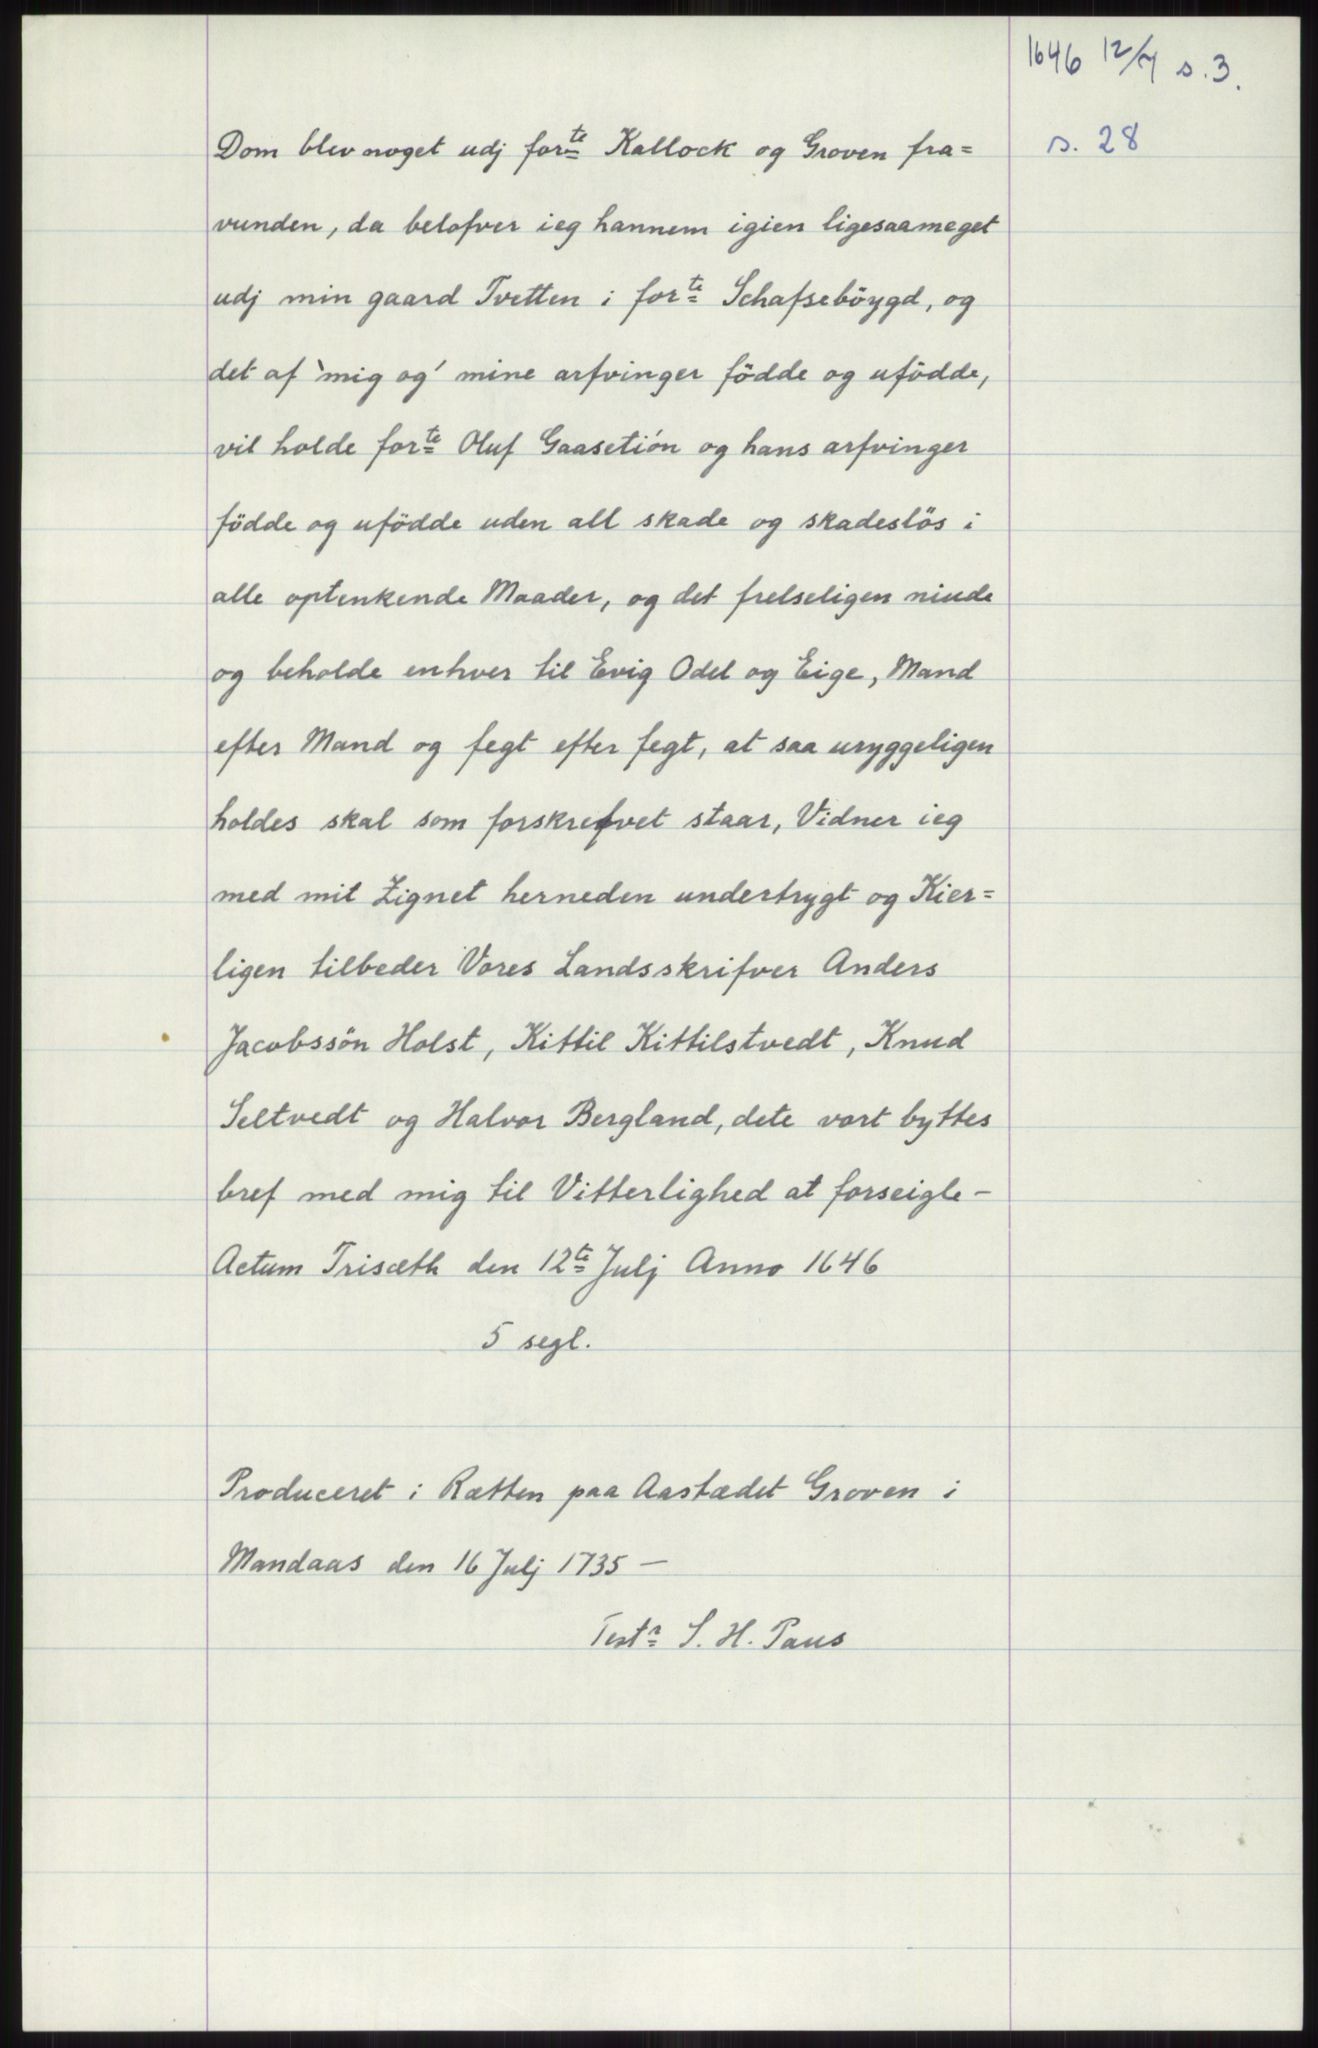 1646 12/7 s. 3.
s. 28
Dom blev noget udj forte Kallock og Groven fra=
vunden, da belofver ieg hannem igien ligesaameget
udj min gaard Tvetten i forte Schafseböygd, og
det af 'mig og' mine arfvinger födde og ufödde,
vil holde forte Oluf Gaasetión og hans arfvinger
födde og ufödde uden all skade og skadeslös i
alle optenkende Maader, og det frelseligen niude
og beholde enhver til Evig Odel og Eige, Mand
efter Mand og fegt efter fegt, at saa uryggeligen
holdes skal som forskrefvet staar, Vidner ieg
med mit Zignet herneden undertrygt og Kier=
ligen tilbeder Vores Landsskrifver Anders
Jacobssön Holst, Kittil Kittilstvedt, Knud
Seltvedt og Halvor Bergland, dete vort byttes
bref med mig til Vitterlighed at forseigle-
Actum Trisæth den 12te Julj Anno 1646
5 segl.
Produceret i Rætten paa Aastædet Groven i
Mandaas den 16 Julj 1735 —
Testr S. H. Paus